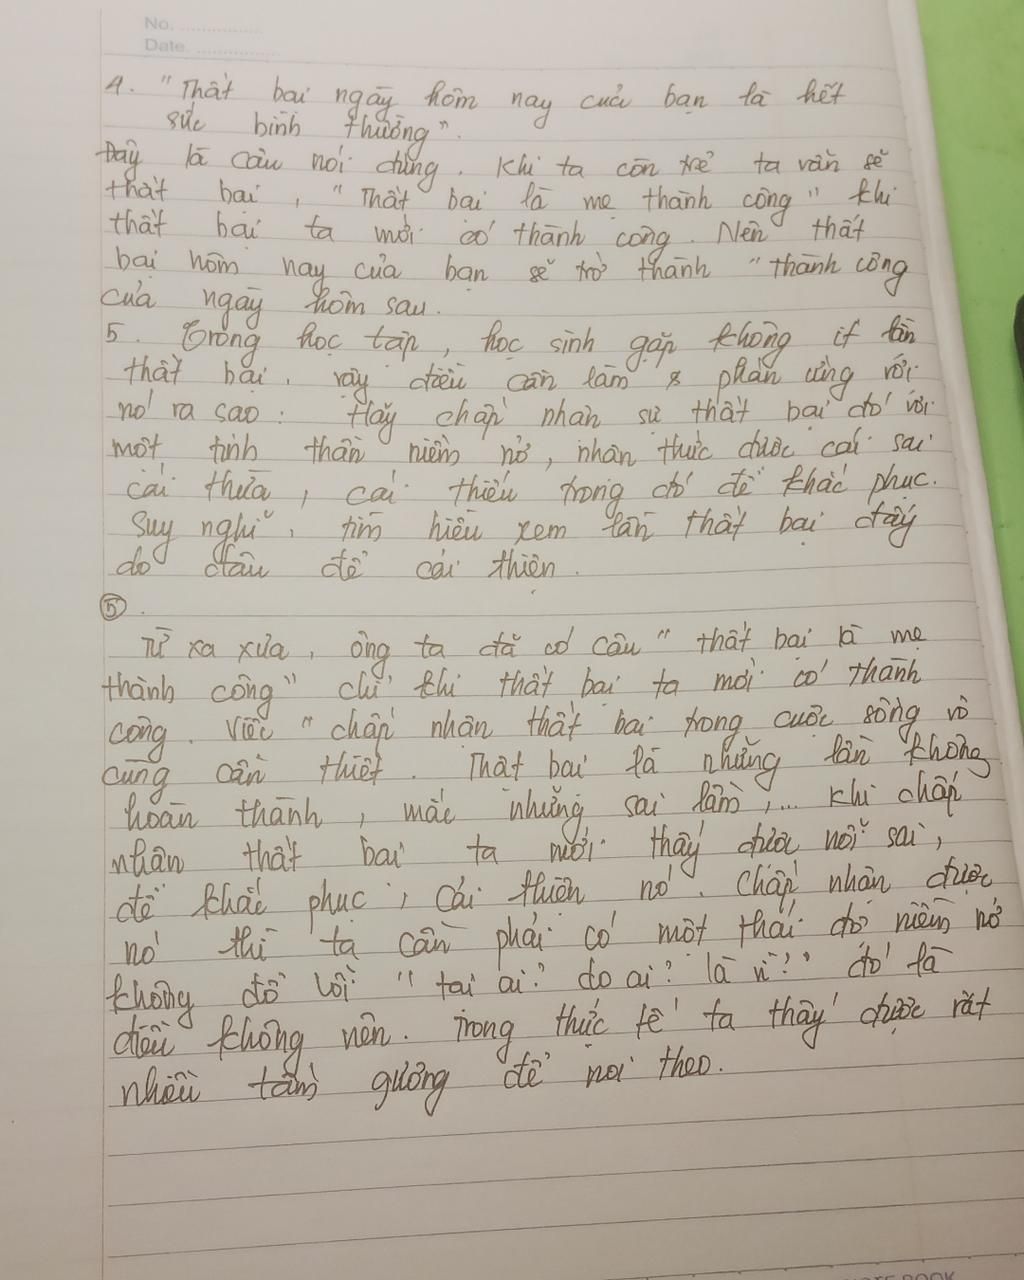 No. ................
Date. ................
4. "Thất bại ngày hôm nay của bạn là hết
sức bình thường".
Đây là câu nói đúng. Khi ta còn trẻ ta vẫn sẽ
thất bại, "Thất bại là mẹ thành công" khi
thất bại ta mới có thành công. Nên thất
bại hôm nay của bạn sẽ trở thành "thành công
của ngày hôm sau.
5. Trong học tập, học sinh gặp không ít lần
thất bại, vậy điều cần làm & phản ứng với
nó ra sao: Hãy chấp nhận sự thất bại đó với
một tinh thần niềm nở, nhận thức được cái sai
cái thừa, cái thiếu trong đó để khắc phục.
Suy nghĩ, tìm hiểu xem lần thất bại đấy
do đâu để cải thiện.
⑤.
Từ xa xưa, ông ta đã có câu "thất bại là mẹ
thành công" chỉ khi thất bại ta mới có thành
công. Việc "chấp nhận thất bại trong cuộc sống vô
cùng cần thiết. Thất bại là những lần không
hoàn thành, mắc những sai lầm,... khi chấp
nhận thất bại ta mới thấy được nỗi sai,
để khắc phục, cải thiện nó. Chấp nhận được
nó thì ta cần phải có một thái độ niềm nở
không đổ lỗi "tại ai? do ai? là vì?" đó là
điều không nên. Trong thực tế ta thấy được rất
nhiều tấm gương để noi theo.